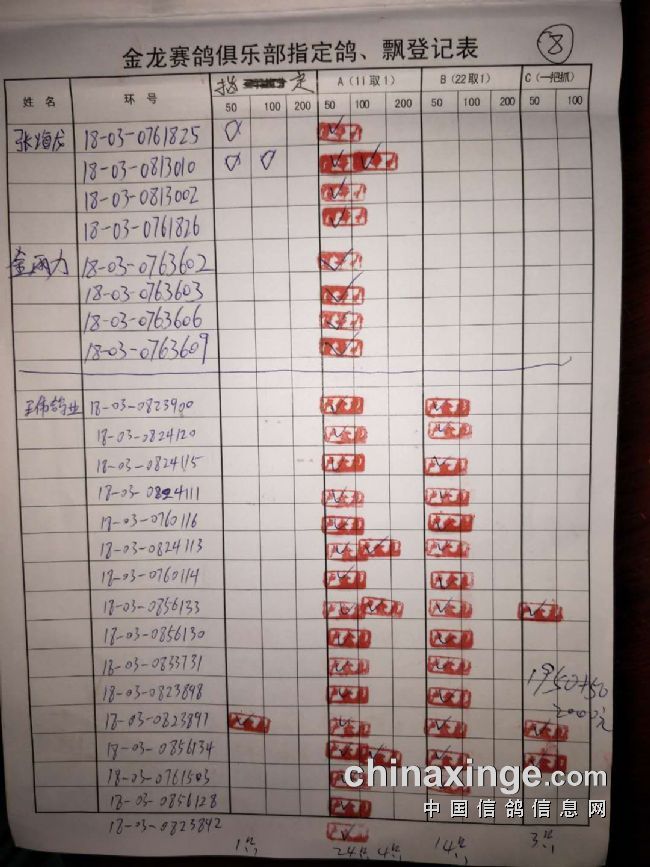 8
金龙赛鸽俱乐部指定鸽、飘登记表
姓 名 环 号 指 定 A (11取1) B (22取1) C (一把抓)
50 100 200 50 100 200 50 100 200 50 100
18-03-0761825
18-03-0813010
18-03-0813002
18-03-0761826
18-03-0763602
18-03-0763603
18-03-0763606
18-03-0763609
王伟鸽业 18-03-0823900
18-03-0824120
18-03-0824115
18-03-0824111
18-03-0760116
18-03-0824113
18-03-0760114
18-03-0856133
18-03-0856130
18-03-0833731
18-03-0823898
1950+50
2000元
18-03-0823891
18-03-0856134
18-03-0761503
18-03-0856128
18-03-0823842
chinaxinge.com
中国信鸽信息网